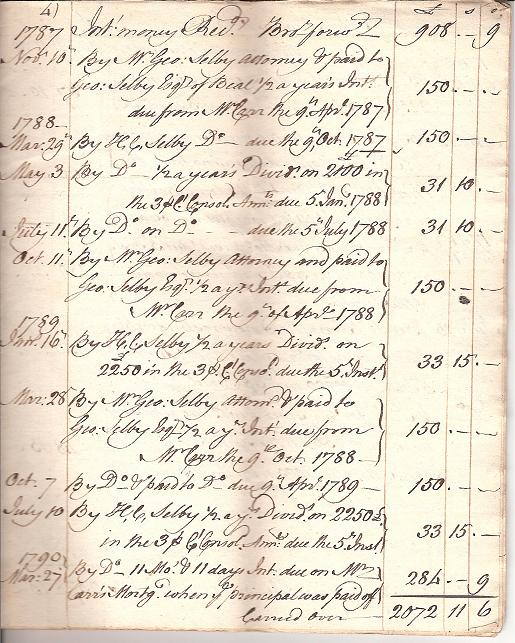 4)
1787 Int: money Rec.d Bro.t forw.d £ 908 .. – 9
Nov: 10 By Mr. Geo: Selby Attorney & paid to
Geo: Selby Esq.r of Beal ½ a year's Int:
due from Mr. Carr the 9.th Apr: 1787 150 .. – .. –
1788 –
Mar: 29 By H. C. Selby D.o – due the 9.th Oct. 1787 150 .. – .. –
May 3 By D.o – ½ a year's Divid.s on 2100 £ in
the 3 P C.t Consol. Ann.s due 5 Jan.y 1788 31 10 .. –
July 11 By D.o on D.o – due the 5 July 1788 31 10 .. –
Oct. 11 By Mr. Geo: Selby Attorney and paid to
Geo: Selby Esq.r ½ a y.rs Int. due from
Mr. Carr the 9.th of Apr: 1788 150 .. – –
1789
Jan: 16 By H. C. Selby ½ a years Divid.s on
2250 £ in the 3 P C.t Consol. due the 5 Inst. 33 15 .. –
Mar: 28 By Mr. Geo: Selby Attorn.y & paid to
Geo: Selby Esq.r ½ a y.rs Int: due from
Mr. Carr the 9.th Oct. 1788 – 150 .. – .. –
Oct. 7 By D.o & paid to D.o due 9.th Apr: 1789 – 150 .. – .. –
July 10 By H. C. Selby ½ a y.rs Divid.s on 2250 £
in the 3 P C.t Consol. Ann.s due the 5 Inst. 33 15 .. –
1790
Mar: 27 By D.o – 11 Mo.s & 11 days Int. due on Mr.
Carr's Mortg.e when y.e principal was paid of 284 .. – 9
Carried over – 2072 11 6